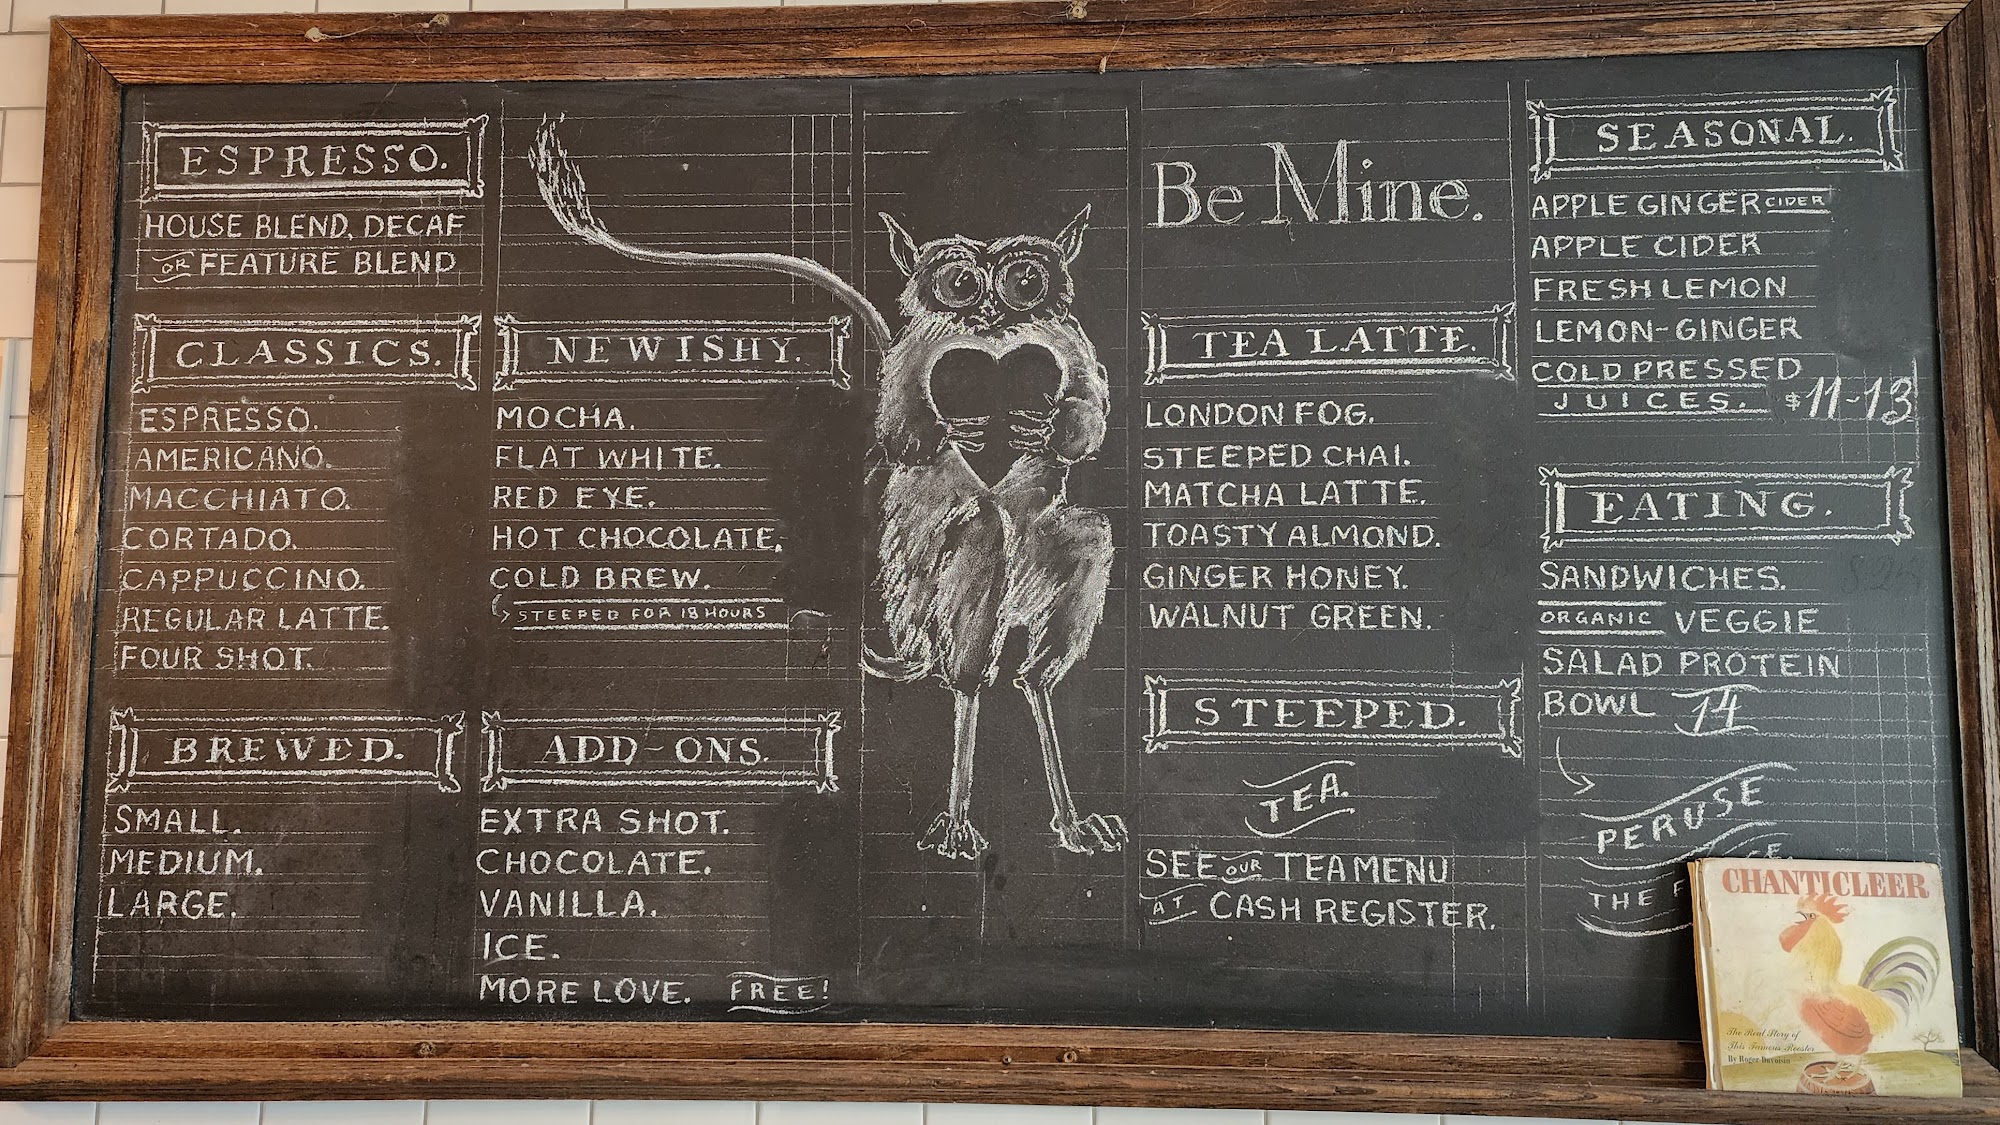 ESPRESSO.
HOUSE BLEND, DECAF
OR FEATURE BLEND
CLASSICS.
ESPRESSO.
AMERICANO.
MACCHIATO.
CORTADO.
CAPPUCCINO.
REGULAR LATTE.
FOUR SHOT.
BREWED.
SMALL.
MEDIUM.
LARGE.
NEWISHY.
MOCHA.
FLAT WHITE.
RED EYE.
HOT CHOCOLATE.
COLD BREW.
STEEPED FOR 18 HOURS
ADD-ONS.
EXTRA SHOT.
CHOCOLATE.
VANILLA.
ICE.
MORE LOVE. FREE!
Be Mine.
TEA LATTE.
LONDON FOG.
STEEPED CHAI.
MATCHA LATTE.
TOASTY ALMOND.
GINGER HONEY.
WALNUT GREEN.
STEEPED.
TEA.
SEE OUR TEA MENU
AT CASH REGISTER.
SEASONAL.
APPLE GINGER CIDER
APPLE CIDER
FRESH LEMON
LEMON-GINGER
COLD PRESSED
JUICES. $11-13
EATING.
SANDWICHES.
ORGANIC VEGGIE
SALAD PROTEIN
BOWL 14
PERUSE
THE
CHANTICLEER
The Real Story of
This Famous Rooster
By Roger Duvoisin